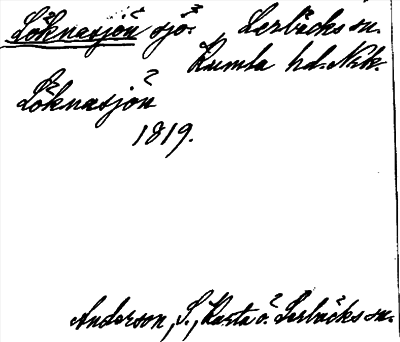 Löknasjön sjö. Lerbäcks sn.
Kumla hd. Nrk.
Löknasjön
1819.
Anderson, S., Karta ö. Lerbäcks sn.